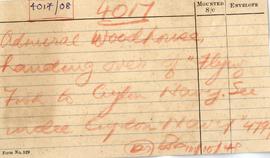 4017/08
4017
MOUNTED
S/C
ENVELOPE
Admiral Woodhouse
handing over of "Flying
Fish to Ceylon Navy. See
under Ceylon Navy" 479
Form No. 529